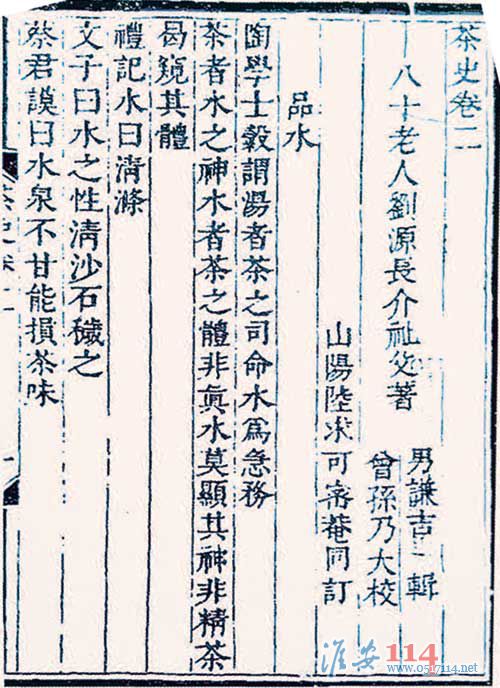 茶史卷二
八十老人劉源長介祉父著
男謙吉輯
曾孫乃大校
山陽陸求可密菴同訂
品水
陶學士穀謂湯者茶之司命水爲急務
茶者水之神水者茶之體非眞水莫顯其神非精茶
曷窺其體
禮記水曰清滌
文子曰水之性清沙石穢之
蔡君謨曰水泉不甘能損茶味
淮安114
www.0517114.net